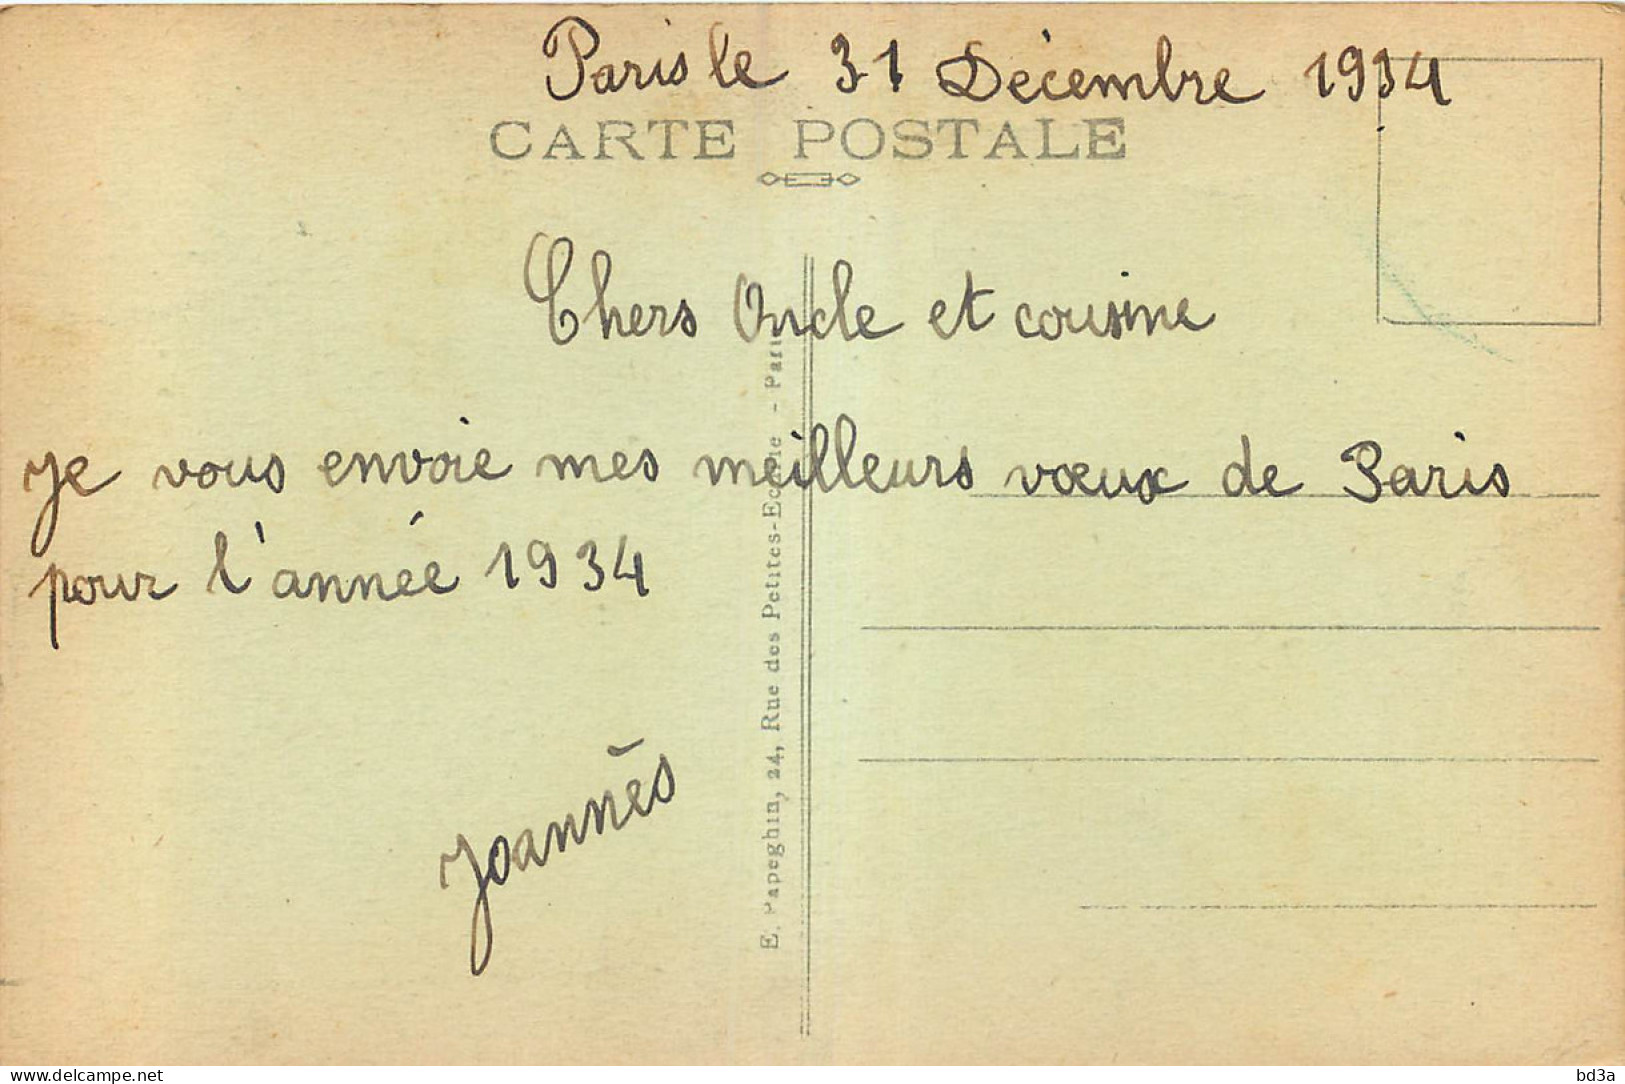 Paris le 31 Décembre 1934
CARTE POSTALE
Chers Oncle et cousine
Je vous envoie mes meilleurs vœux de Paris
pour l'année 1934
Joannès
E. Papeghin, 24, Rue des Petites-Ecurie - Paris
www.delcampe.net
bd3a